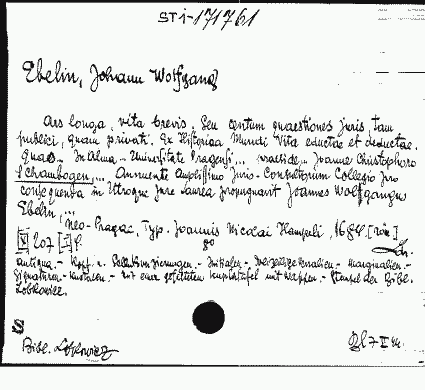 ST i-171761
Ebelin, Johann Wolfgang
Ars longa, vita brevis. Seu centum quaestiones juris, tam
publici, quam privati. Ex Historiaa Mundi Vita eductae et deductae.
Quas- In Alma- Universitate Pragensi... praeside... Joanne Christophoro
Schambogen,... Annuente Amplissimo Juris-Consultorum Collegio pro
consequenda in Utroque Jure Laurea propugnavit Joannes Wolfgangus
Ebelin,...
Neo-Pragae, Typ. Joannis Nicolai Hampeli, 1684. [röm]
[X] 207 [1] p. 8°
Antiqua.- Kopf u. - Initialen.- - Marginalien.-
Signaturen.- Kustoden.- Mit einer gefalteten Kupfertafel mit Wappen.- Stempel der Bibl.
Lobkowicz.
S
Bibl. Lobkowicz